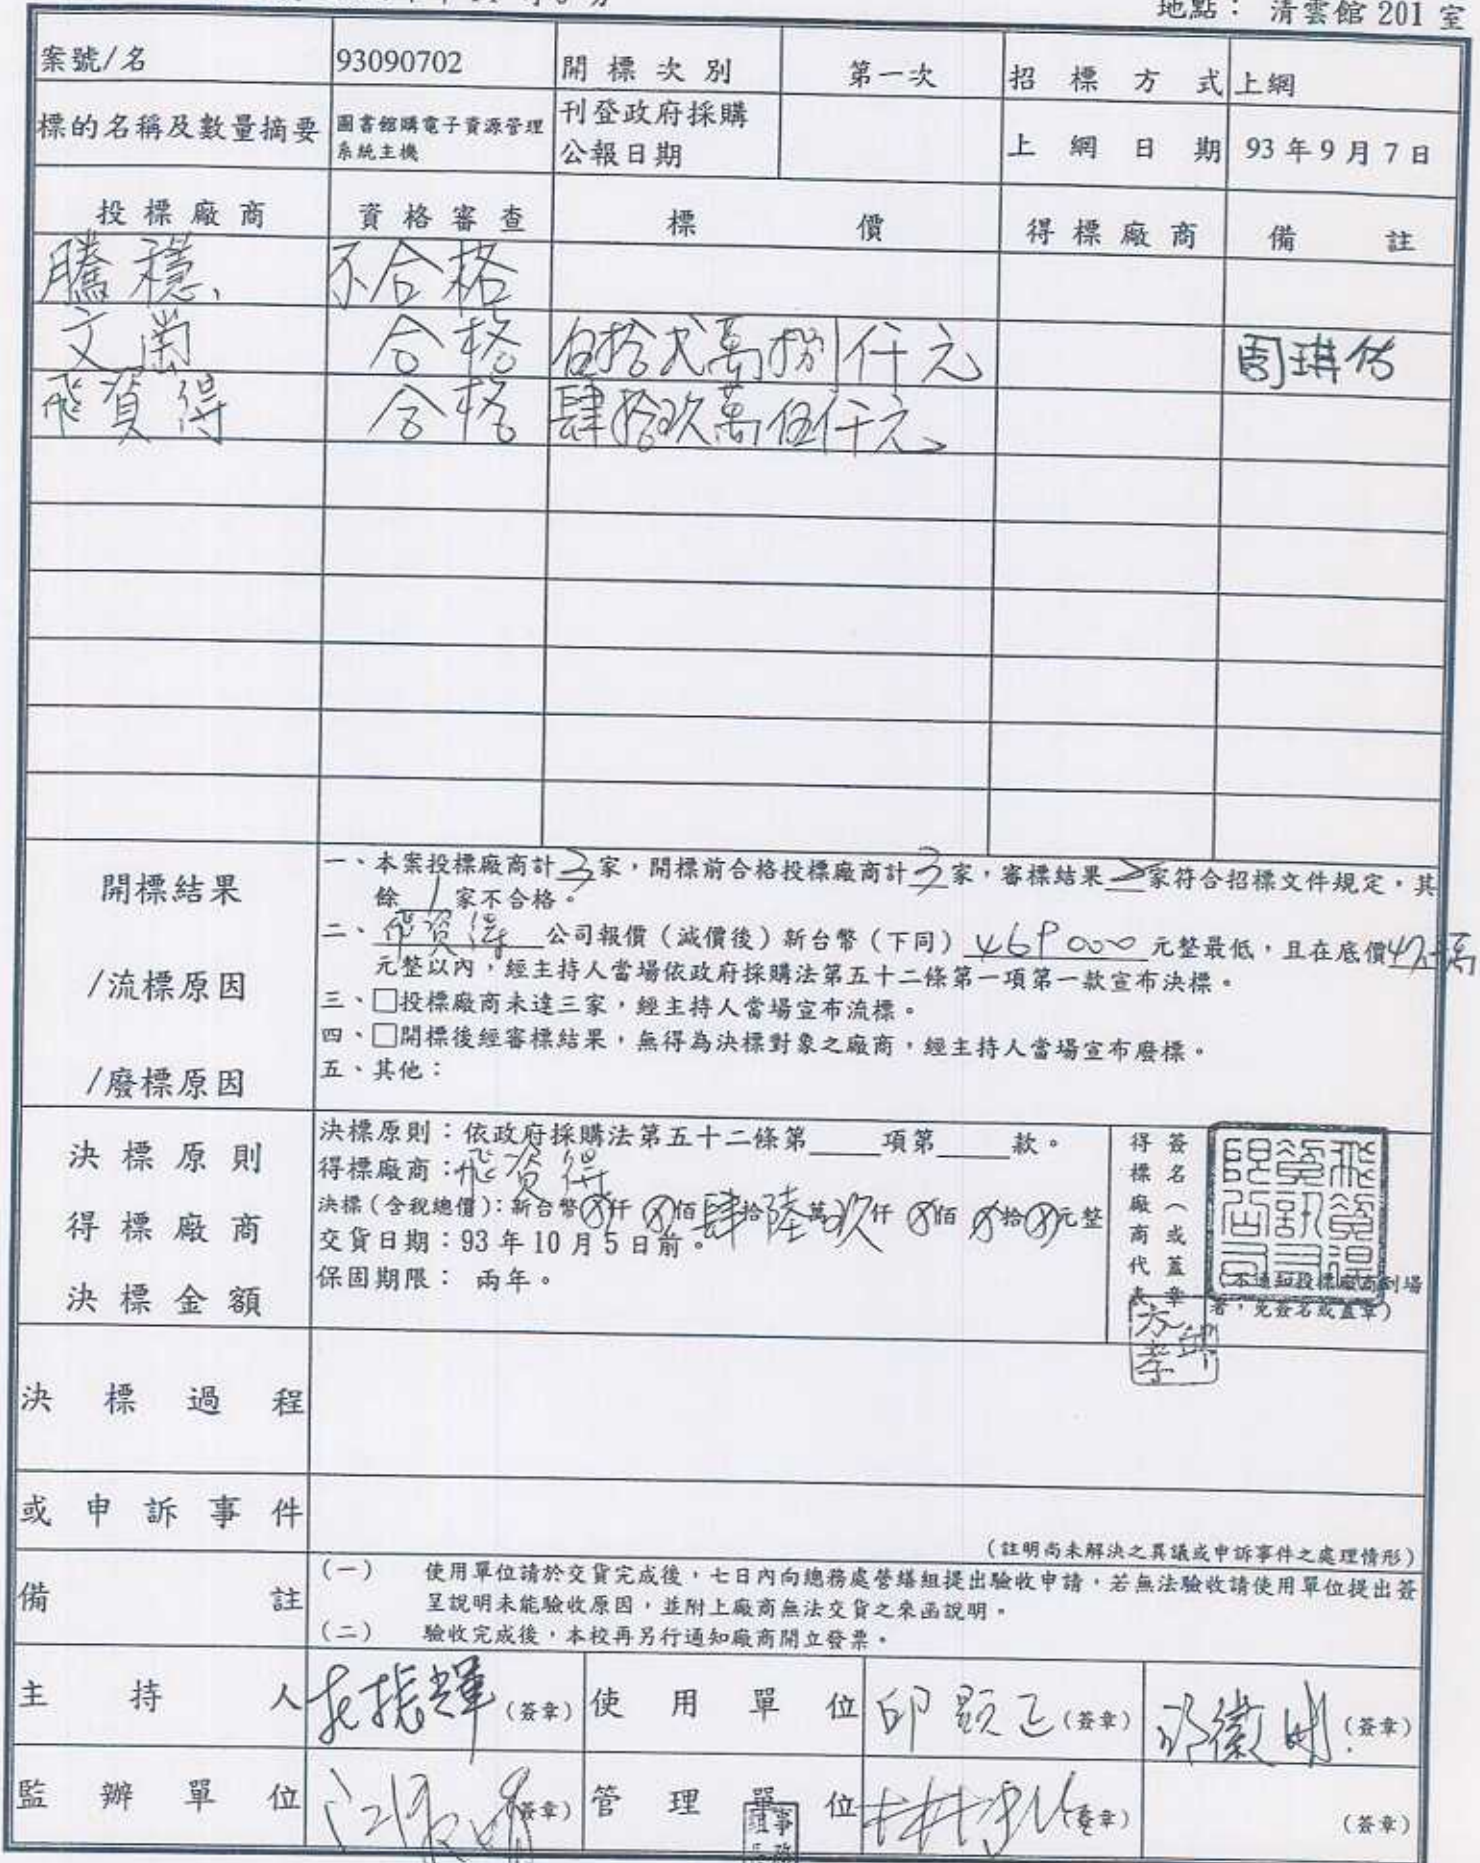 地點： 清雲館 201 室
案號/名 93090702 開標次別 第一次 招標方式 上網
標的名稱及數量摘要 圖書館購電子資源管理系統主機 刊登政府採購公報日期 上網日期 93 年 9 月 7 日
投標廠商 資格審查 標價 得標廠商 備註
騰穩 不合格
文崗 合格 伍拾弍萬捌仟元
飛資得 合格 肆拾玖萬伍仟元
開標結果
/流標原因
/廢標原因
一、本案投標廠商計 3 家，開標前合格投標廠商計 3 家，審標結果 2 家符合招標文件規定，其
餘 1 家不合格。
二、飛資得 公司報價（減價後）新台幣（下同） 469000 元整最低，且在底價47萬
元整以內，經主持人當場依政府採購法第五十二條第一項第一款宣布決標。
三、□投標廠商未達三家，經主持人當場宣布流標。
四、□開標後經審標結果，無得為決標對象之廠商，經主持人當場宣布廢標。
五、其他：
決標原則
得標廠商
決標金額
決標原則：依政府採購法第五十二條第____項第____款。
得標廠商：飛資得
決標(含稅總價)：新台幣Ⓧ仟Ⓧ佰肆拾陸萬玖仟Ⓧ佰Ⓧ拾Ⓧ元整
交貨日期：93 年 10 月 5 日前。
保固期限： 兩年。
得標廠商代表
簽名（或蓋章
飛資得資訊有限公司
不通知投標廠商到場
者，免簽名或蓋章）
決標過程
或申訴事件
（註明尚未解決之異議或申訴事件之處理情形）
備註
（一） 使用單位請於交貨完成後，七日內向總務處營繕組提出驗收申請，若無法驗收請使用單位提出簽
呈說明未能驗收原因，並附上廠商無法交貨之來函說明。
（二） 驗收完成後，本校再另行通知廠商開立發票。
主持人 (簽章) 使用單位 邱顯正 (簽章) (簽章)
監辦單位 (簽章) 管理單位 (簽章) (簽章)